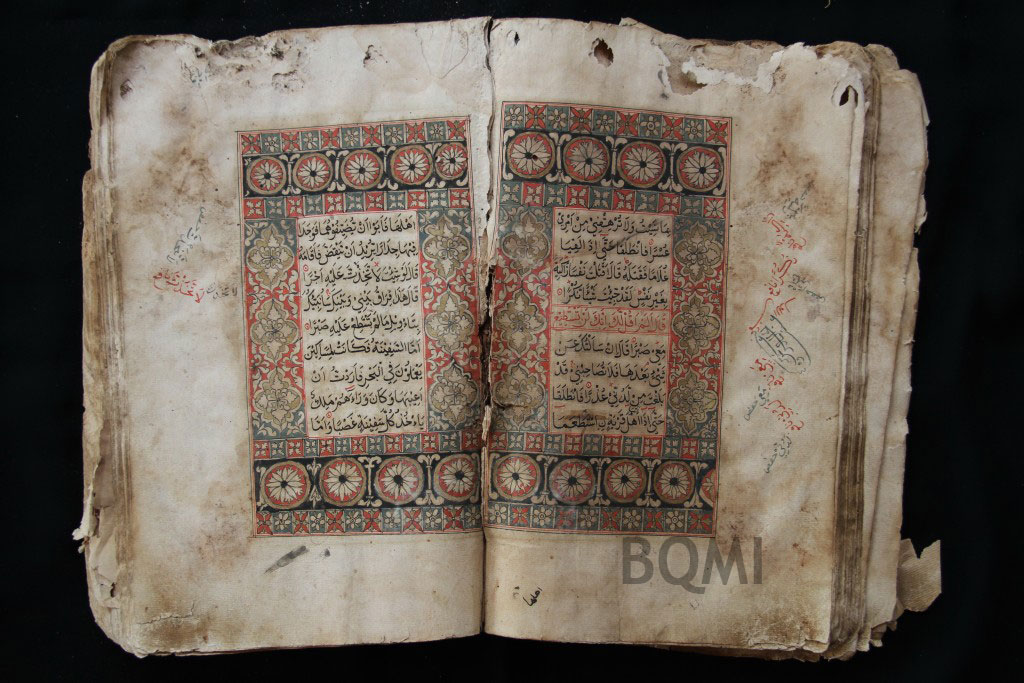 مَا نَسِيتُ وَلَا تُرْهِقْنِي مِنْ أَمْرِي
عُسْرًا فَانْطَلَقَا حَتَّى إِذَا لَقِيَا
غُلَامًا فَقَتَلَهُ قَالَ أَقَتَلْتَ نَفْسًا زَاكِيَةً
بِغَيْرِ نَفْسٍ لَقَدْ جِئْتَ شَيْئًا نُكْرًا
قَالَ أَلَمْ أَقُلْ لَكَ إِنَّكَ لَنْ تَسْتَطِيعَ
مَعِيَ صَبْرًا قَالَ إِنْ سَأَلْتُكَ عَنْ
شَيْءٍ بَعْدَهَا فَلَا تُصَاحِبْنِي قَدْ
بَلَغْتَ مِنْ لَدُنِّي عُذْرًا فَانْطَلَقَا
حَتَّى إِذَا أَتَيَا أَهْلَ قَرْيَةٍ اسْتَطْعَمَا
اهلها
أَهْلَهَا فَأَبَوْا أَنْ يُضَيِّفُوهُمَا فَوَجَدَا
فِيهَا جِدَارًا يُرِيدُ أَنْ يَنْقَضَّ فَأَقَامَهُ
قَالَ لَوْ شِئْتَ لَاتَّخَذْتَ عَلَيْهِ أَجْرًا
قَالَ هَذَا فِرَاقُ بَيْنِي وَبَيْنِكَ سَأُنَبِّئُكَ
بِتَأْوِيلِ مَا لَمْ تَسْتَطِعْ عَلَيْهِ صَبْرًا
أَمَّا السَّفِينَةُ فَكَانَتْ لِمَسَاكِينَ
يَعْمَلُونَ فِي الْبَحْرِ فَأَرَدْتُ أَنْ
أَعِيبَهَا وَكَانَ وَرَاءَهُمْ مَلِكٌ
يَأْخُذُ كُلَّ سَفِينَةٍ غَصْبًا وَأَمَّا
BQMI